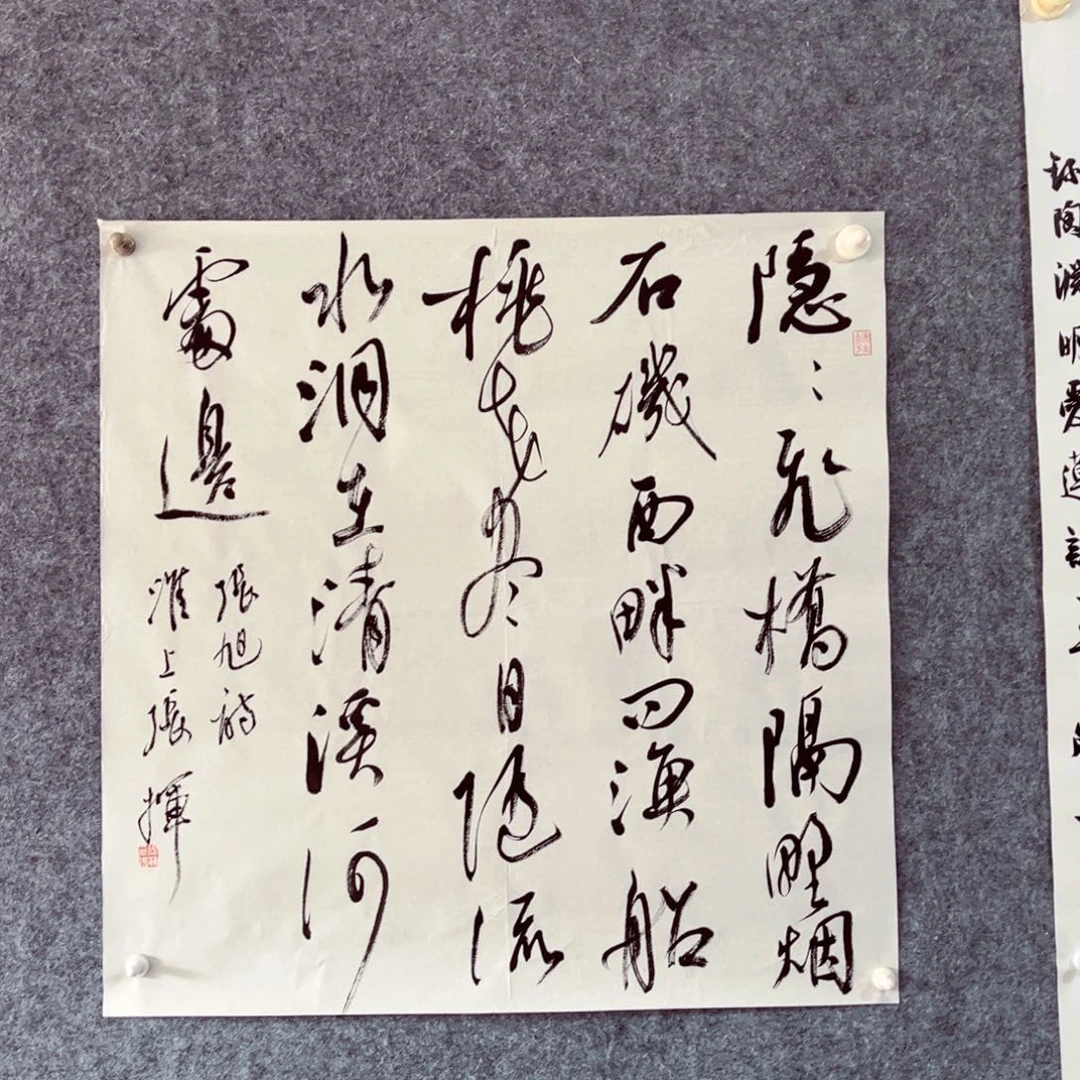 陶渊明愛蓮
隱〻飛橋隔野烟
石磯西畔問漁船
桃花尽日随流
水洞在清溪何
處邊
張旭詩
淮上張揮